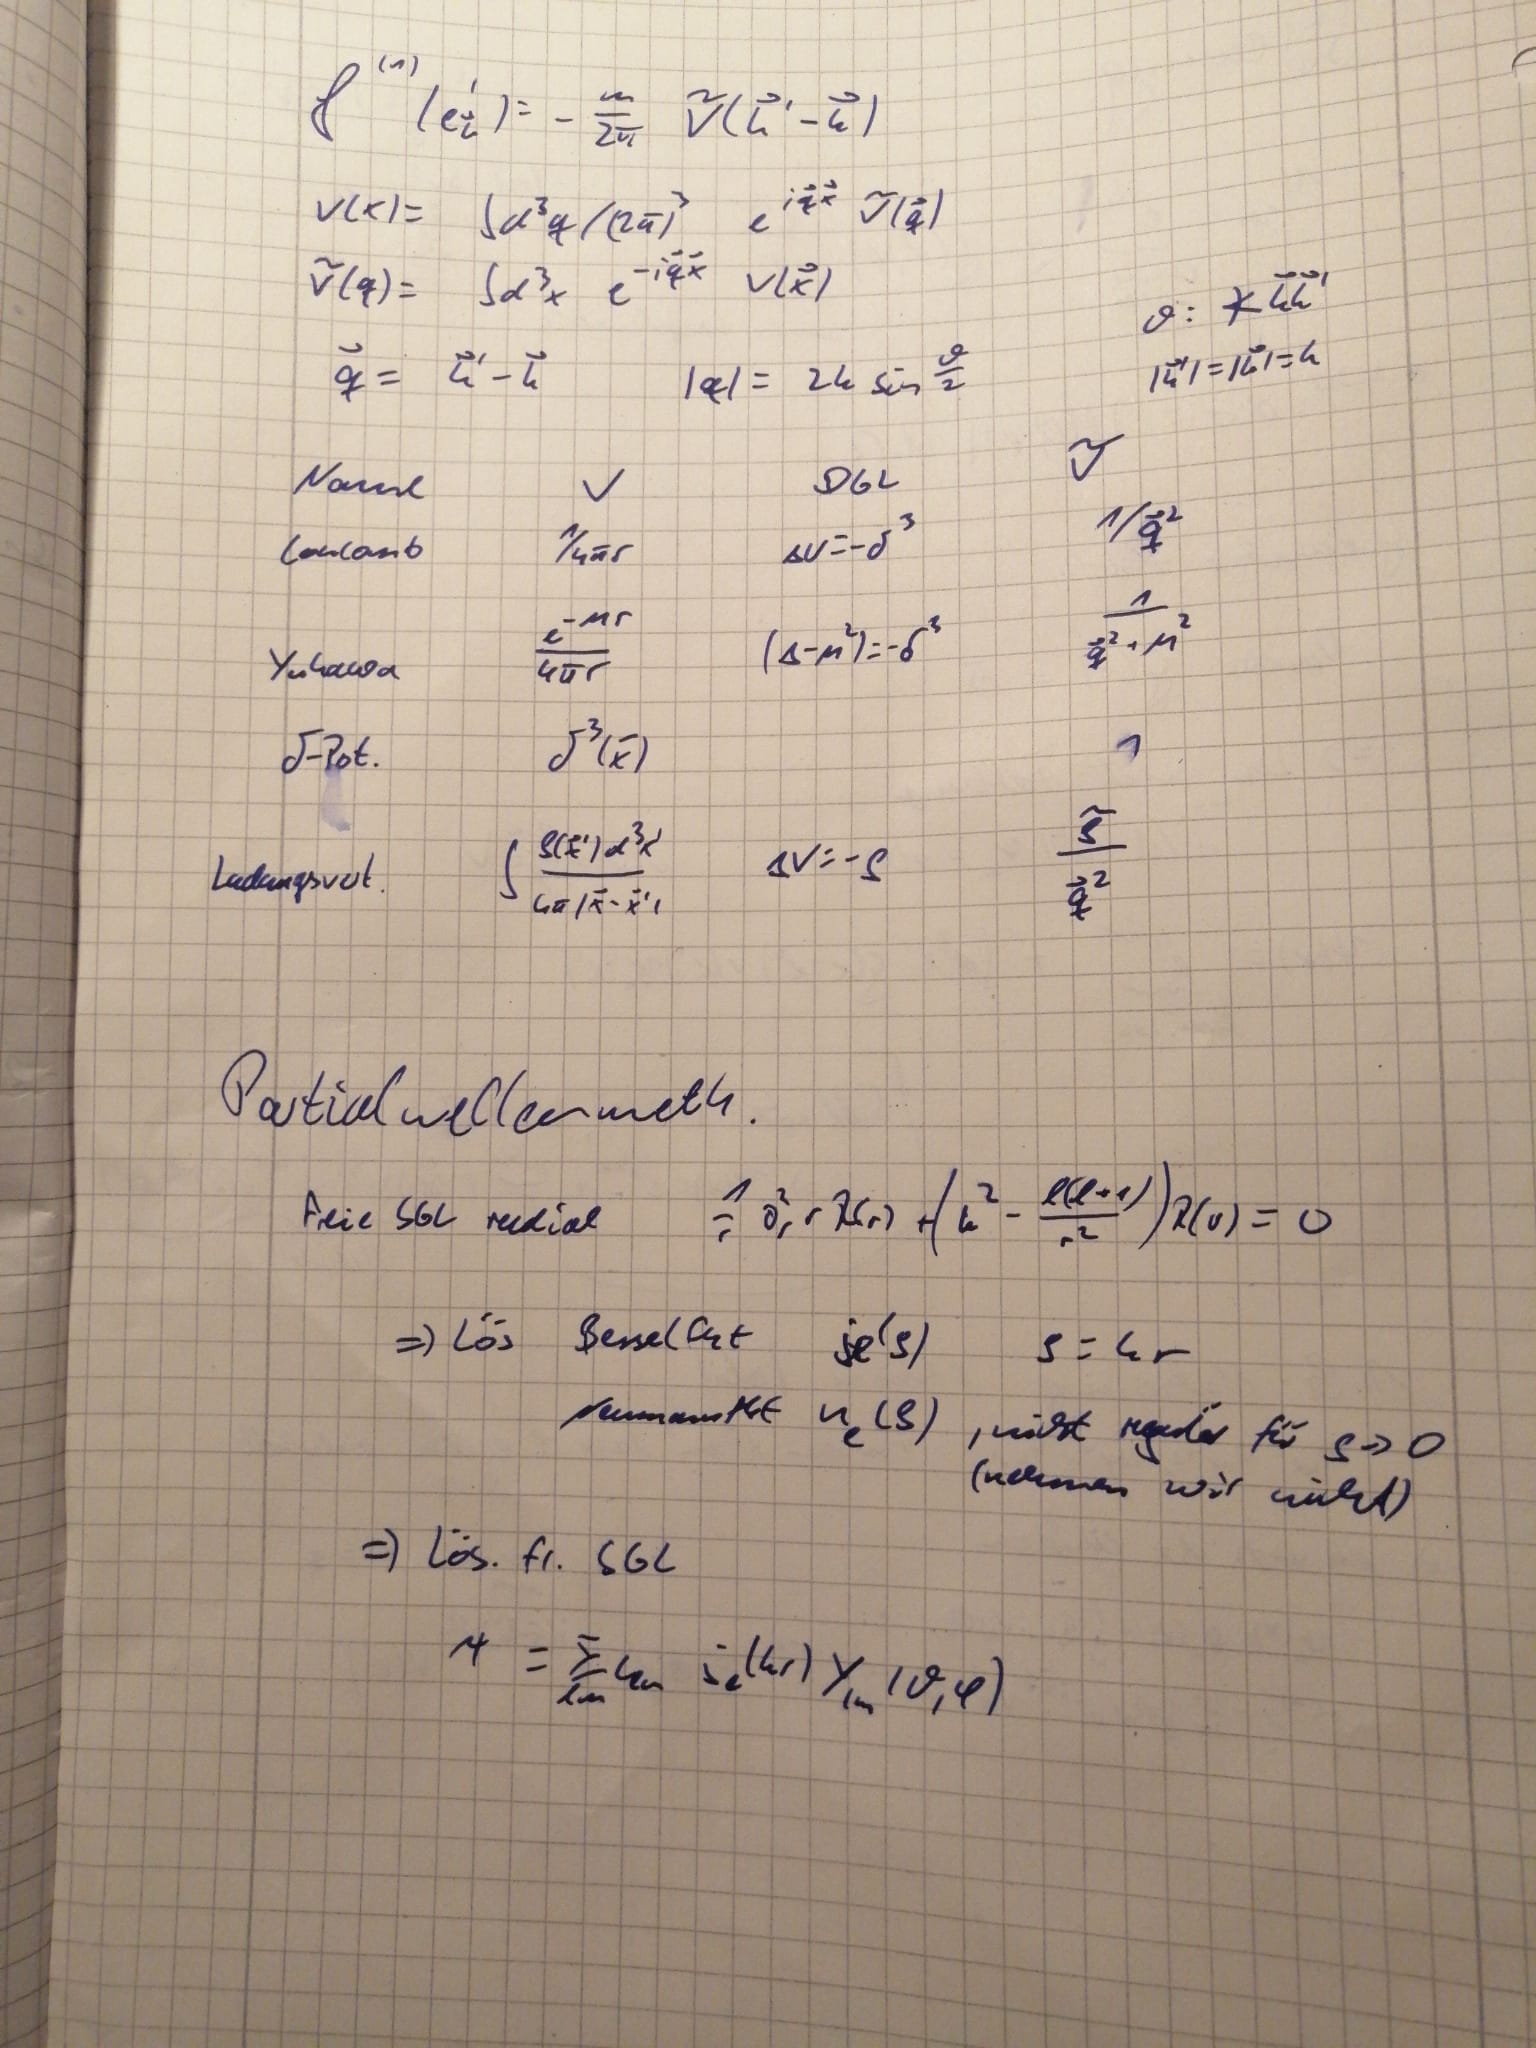 f⁽¹⁾(e'ₖ) = - m/2π Ṽ(k⃗' - k⃗)
V(x) = ∫d³q/(2π)³ e^{iq⃗x⃗} Ṽ(q⃗)
Ṽ(q) = ∫d³x e^{-iq⃗x⃗} V(x⃗)
ϑ: ∡ k⃗k⃗'
q⃗ = k⃗' - k⃗ |q| = 2k sin ϑ/2 |k⃗'| = |k⃗| = k
Name V DGL Ṽ
Coulomb 1/4πr ΔV = -δ³ 1/q⃗²
Yukawa e^{-μr}/4πr (Δ-μ²) = -δ³ 1/(q⃗² + μ²)
δ-Pot. δ³(x⃗) 1
Ladungsvert. ∫ ρ(x⃗')d³x'/4π|x⃗-x⃗'| ΔV = -ρ ρ̃/q⃗²
Partialwellenmeth.
Freie SGL radial 1/r ∂ᵣ² r R(r) + (k² - l(l+1)/r²) R(r) = 0
=> Lös Besselfkt jₗ(ρ) ρ = kr
Neumannfkt nₗ(ρ) , nicht regulär für ρ → 0
(nehmen wir nicht)
=> Lös. fr. SGL
ψ = Σₗₘ jₗ(kr) Yₗₘ(ϑ,φ)